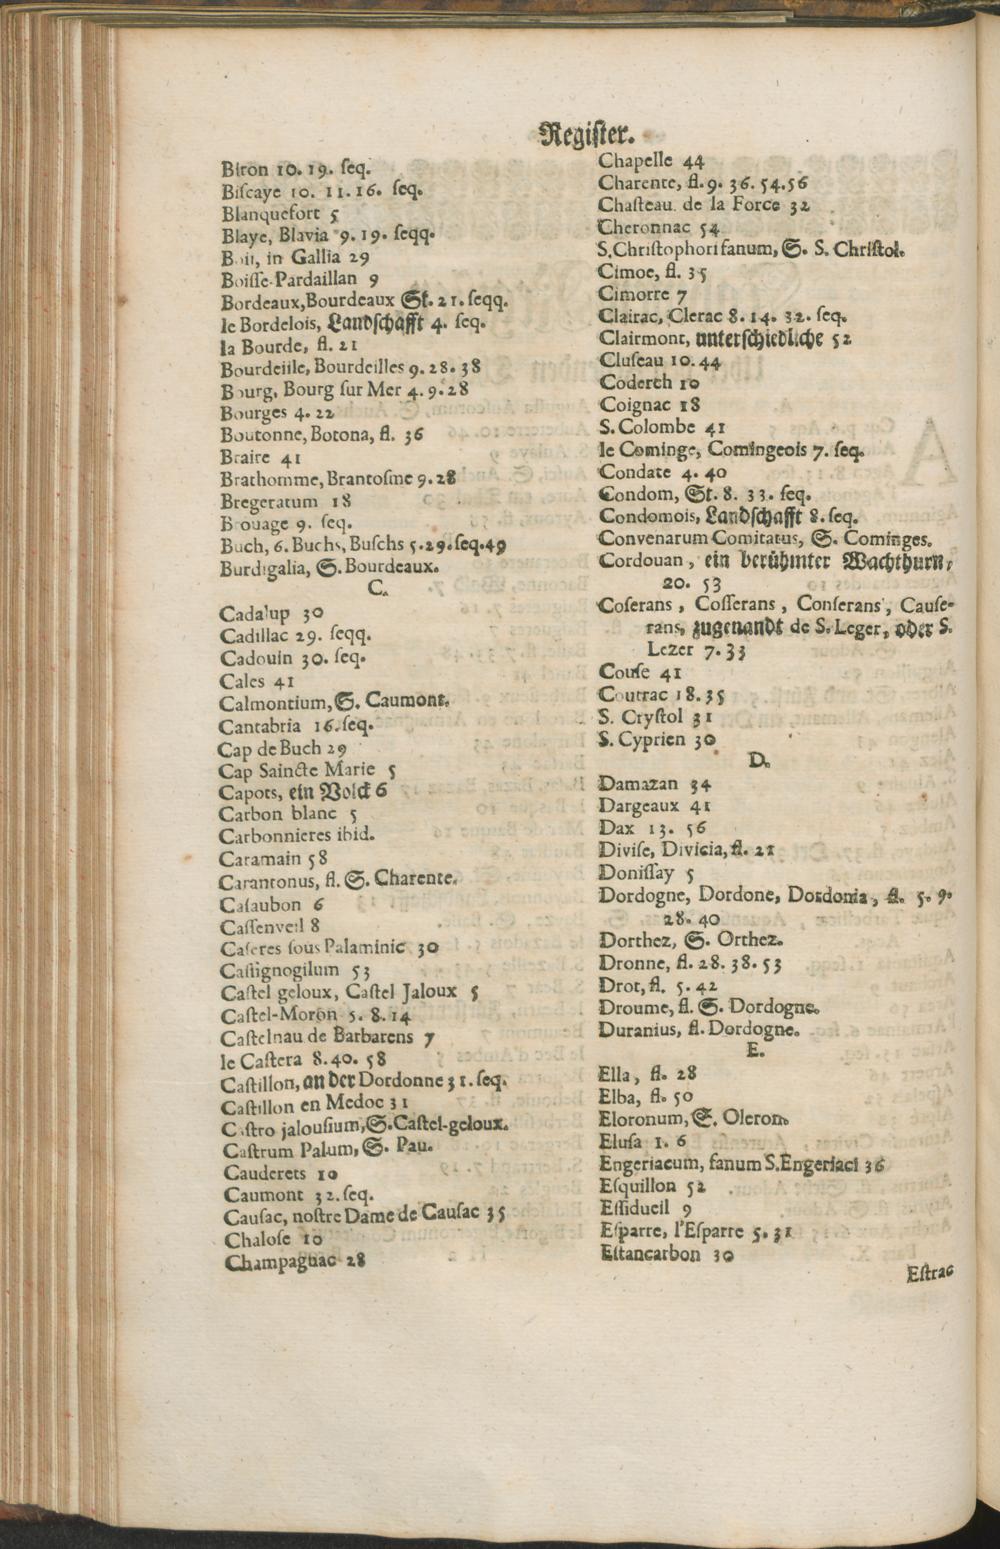 Regiſter.
Biron 10. 19. ſeq.
Biſcaye 10. 11. 16. ſeq.
Blanquefort 5
Blaye, Blavia 9. 19. ſeqq.
Boii, in Gallia 29
Boiſſe-Pardaillan 9
Bordeaux, Bourdeaux St. 21. ſeqq.
le Bordelois, Landſchafft 4. ſeq.
la Bourde, fl. 21
Bourdeille, Bourdeilles 9. 28. 38
Bourg, Bourg ſur Mer 4. 9. 28
Bourges 4. 22
Boutonne, Botona, fl. 36
Braire 41
Brathomme, Brantoſme 9. 28
Bregeratum 18
Brouage 9. ſeq.
Buch, 6. Buchs, Buſchs 5. 29. ſeq. 49
Burdigalia, S. Bourdeaux.
C.
Cadalup 30
Cadillac 29. ſeqq.
Cadouin 30. ſeq.
Cales 41
Calmontium, S. Caumont.
Cantabria 16. ſeq.
Cap de Buch 29
Cap Saincte Marie 5
Capots, ein Volck 6
Carbon blanc 5
Carbonnieres ibid.
Caramain 58
Carantonus, fl. S. Charente.
Caſaubon 6
Caſſenveil 8
Caſeres ſous Palaminic 30
Caſſignogilum 53
Caſtel geloux, Caſtel Jaloux 5
Caſtel-Moron 5. 8. 14
Caſtelnau de Barbarens 7
le Caſtera 8. 40. 58
Caſtillon, an der Dordonne 31. ſeq.
Caſtillon en Medoc 31
Caſtro jalouſium, S. Caſtel-geloux.
Caſtrum Palum, S. Pau.
Cauderets 10
Caumont 32. ſeq.
Cauſac, noſtre Dame de Cauſac 35
Chaloſe 10
Champagnac 28
Chapelle 44
Charente, fl. 9. 36. 54. 56
Chaſteau de la Force 32
Cheronnac 54
S. Chriſtophori fanum, S. S. Chriſtol.
Cimoe, fl. 35
Cimorre 7
Clairac, Clerac 8. 14. 32. ſeq.
Clairmont, unterſchiedliche 52
Cluſeau 10. 44
Coderch 10
Coignac 18
S. Colombe 41
le Cominge, Comingeois 7. ſeq.
Condate 4. 40
Condom, St. 8. 33. ſeq.
Condomois, Landſchafft 8. ſeq.
Convenarum Comitatus, S. Cominges.
Cordouan, ein berühmter Wachthurn,
20. 53
Coſerans, Coſſerans, Conſerans, Cauſe-
rans, zugenandt de S. Leger, oder S.
Lezer 7. 33
Couſe 41
Coutrac 18. 35
S. Cryſtol 31
S. Cyprien 30
D.
Damazan 34
Dargeaux 41
Dax 13. 56
Diviſe, Divicia, fl. 21
Doniſſay 5
Dordogne, Dordone, Dordonia, fl. 5. 9.
28. 40
Dorthez, S. Orthez.
Dronne, fl. 28. 38. 53
Drot, fl. 5. 42
Droume, fl. S. Dordogne.
Duranius, fl. Dordogne.
E.
Ella, fl. 28
Elba, fl. 50
Eloronum, S. Oleron.
Eluſa 1. 6
Engeriacum, fanum S. Engeriaci 36
Eſquillon 52
Eſſidueil 9
Eſparre, l'Eſparre 5. 31
Eſtancarbon 30
Eſtrac